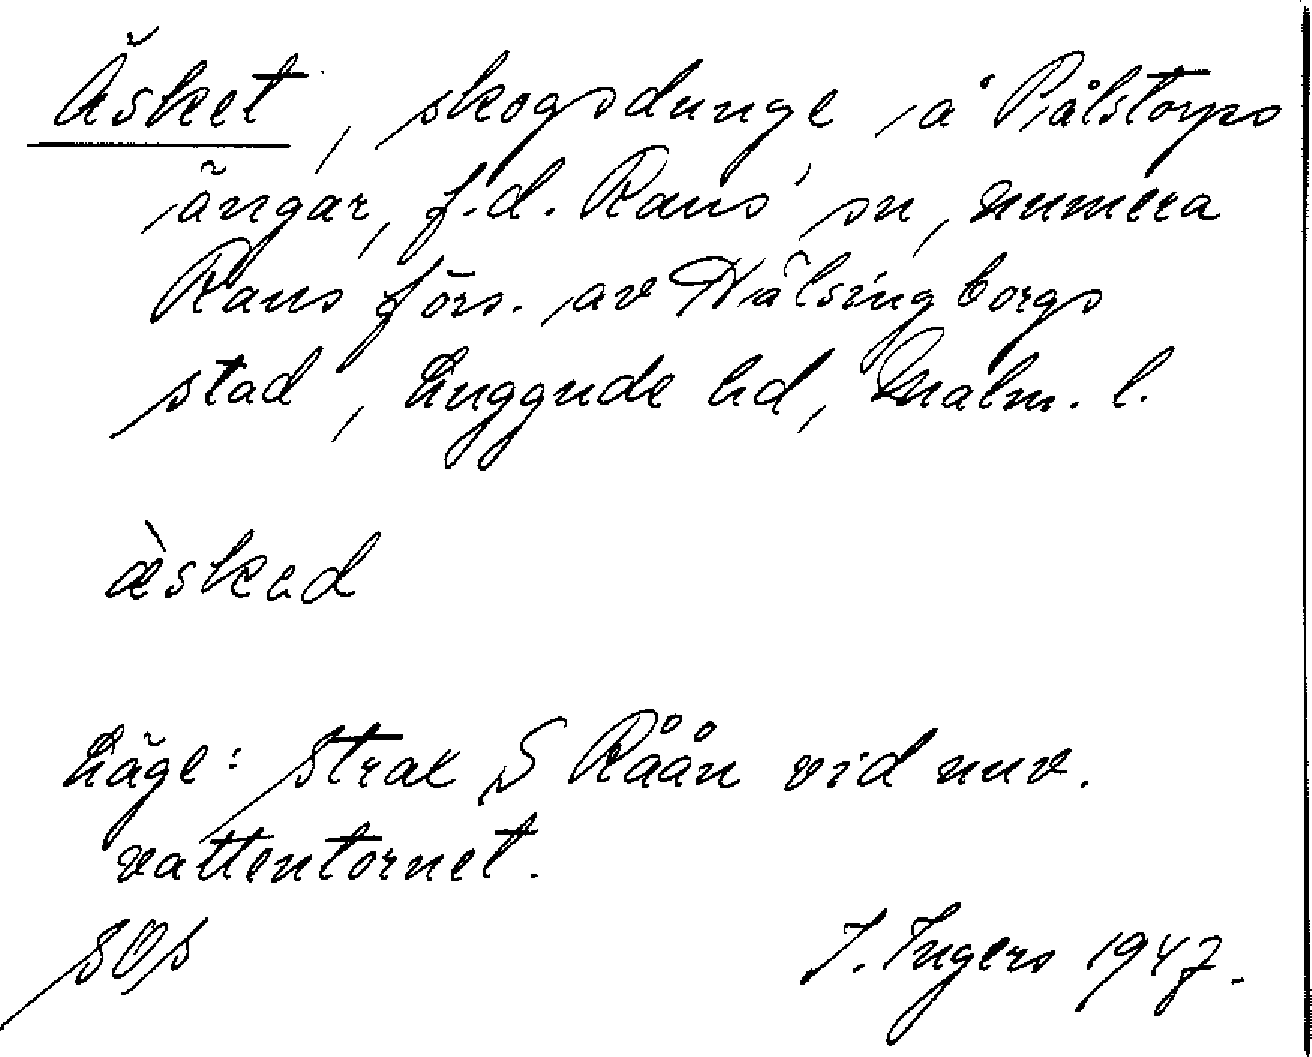 Äsket, skogsdunge å Pålstorps
ängar, f.d. Raus' sn, numera
Raus förs. av Hälsingborgs
stad, Luggude hd, Malm. l.
æ̀skad
Läge: Strax S Råån vid nuv.
vattentornet.
SOS
I. Ingers 1947.